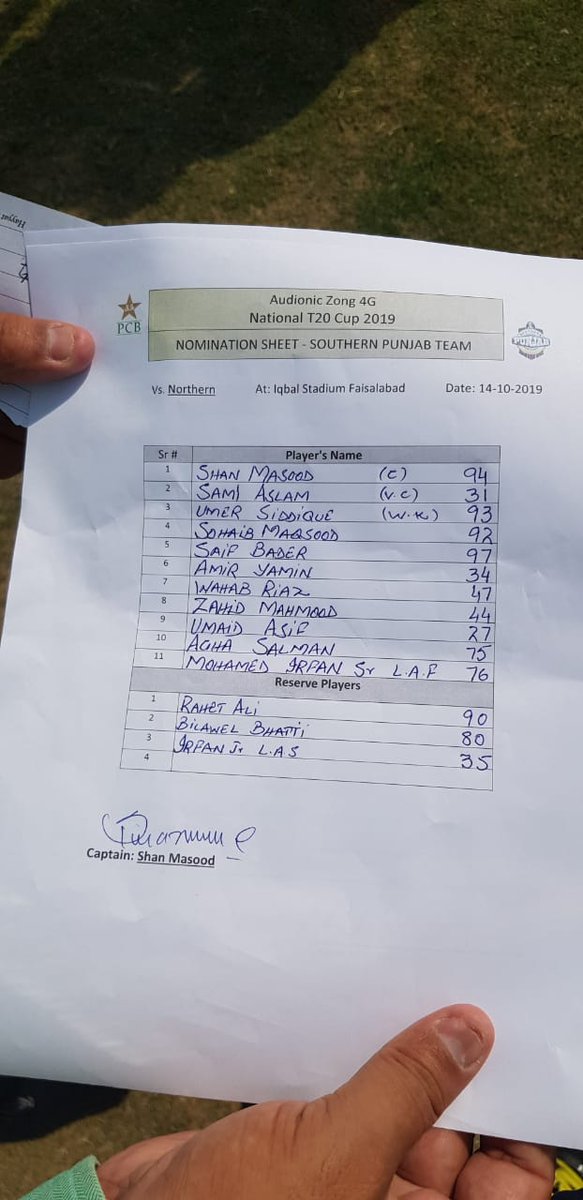 PCB
Audionic Zong 4G
National T20 Cup 2019
NOMINATION SHEET - SOUTHERN PUNJAB TEAM
PUNJAB
Vs. Northern At: Iqbal Stadium Faisalabad Date: 14-10-2019
Sr # Player's Name
1 SHAN MASOOD (C) 94
2 SAMI ASLAM (V.C) 31
3 UMER SIDDIQUE (W.K) 93
4 SOHAIB MAQSOOD 92
5 SAIF BADER 97
6 AMIR YAMIN 34
7 WAHAB RIAZ 47
8 ZAHID MAHMOOD 44
9 UMAID ASIF 27
10 AGHA SALMAN 75
11 MOHAMED IRFAN Sr L.A.F 76
Reserve Players
1 RAHET ALI 90
2 BILAWEL BHATTI 80
3 IRFAN Jr L.A.S 35
4
Captain: Shan Masood